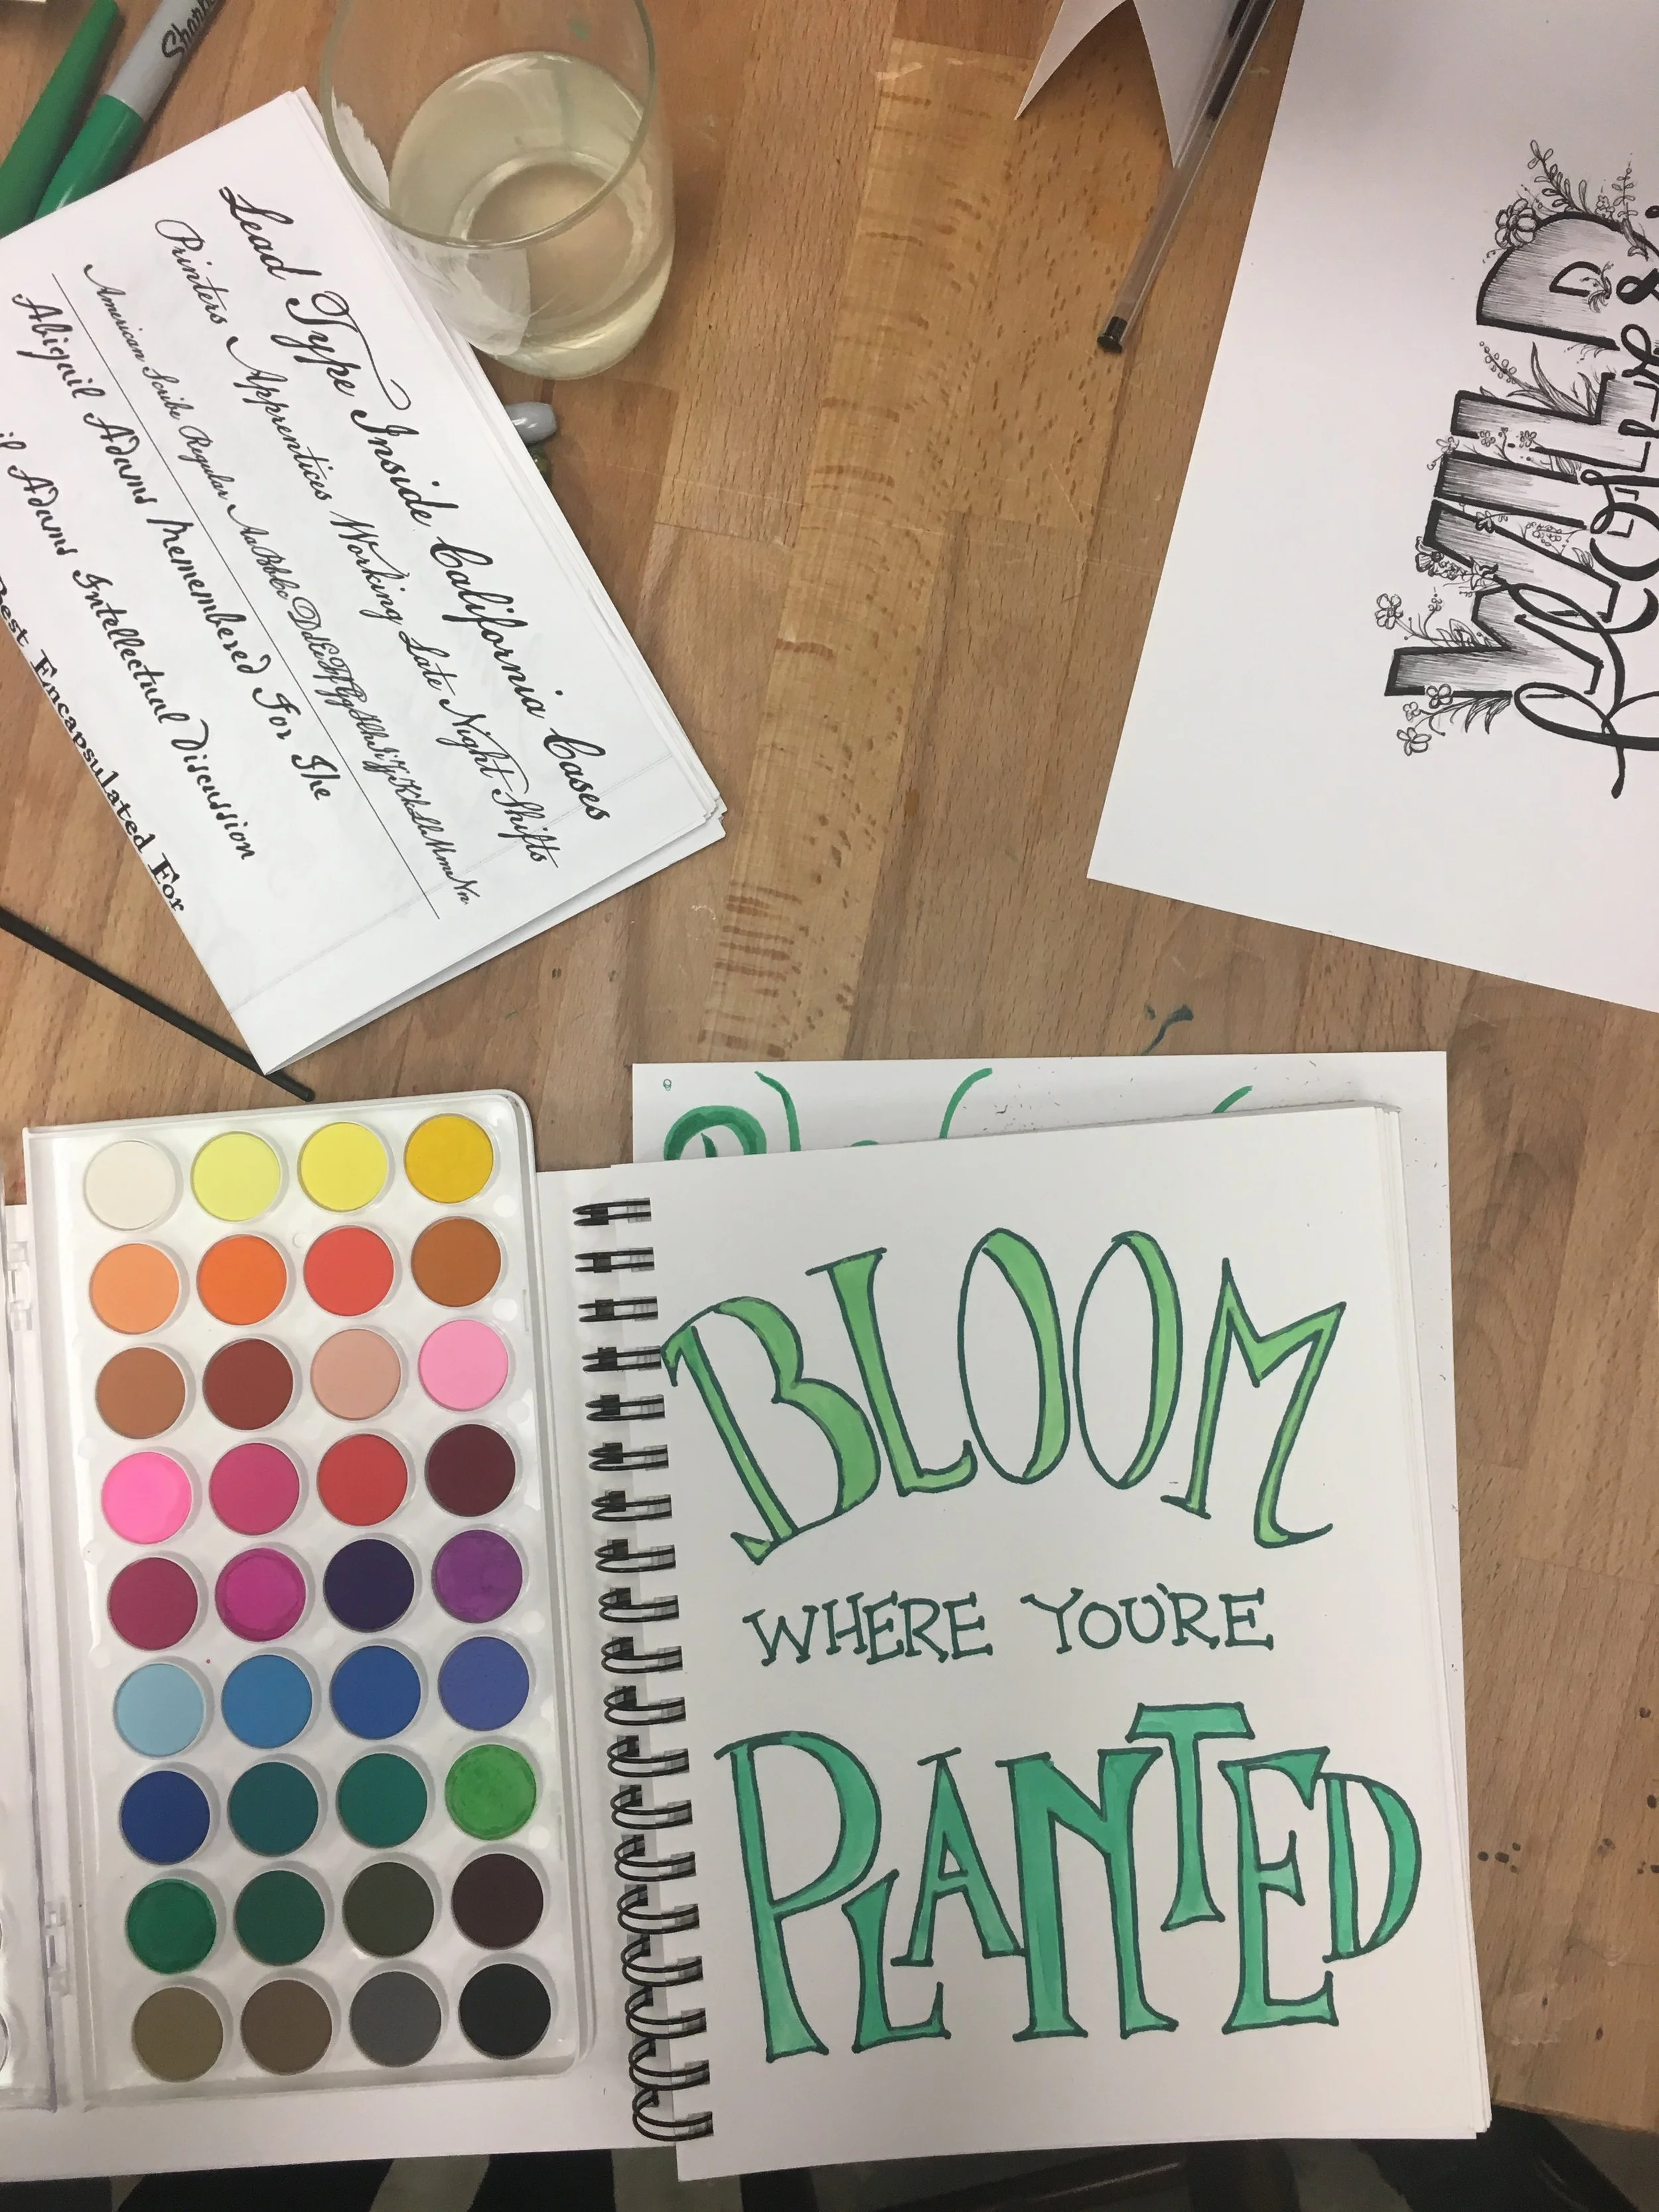 Sharpie
Lead Type Inside California Cases
Printers Apprentices Working Late Night Shifts
American Scribe Regular AaBbCcDdEeFfGgHhIiJjKkLlMmNn
Abigail Adams Remembered For The
Adams Intellectual Discussion
Best Encapsulated For
WILD
BLOOM
WHERE YOU'RE
PLANTED